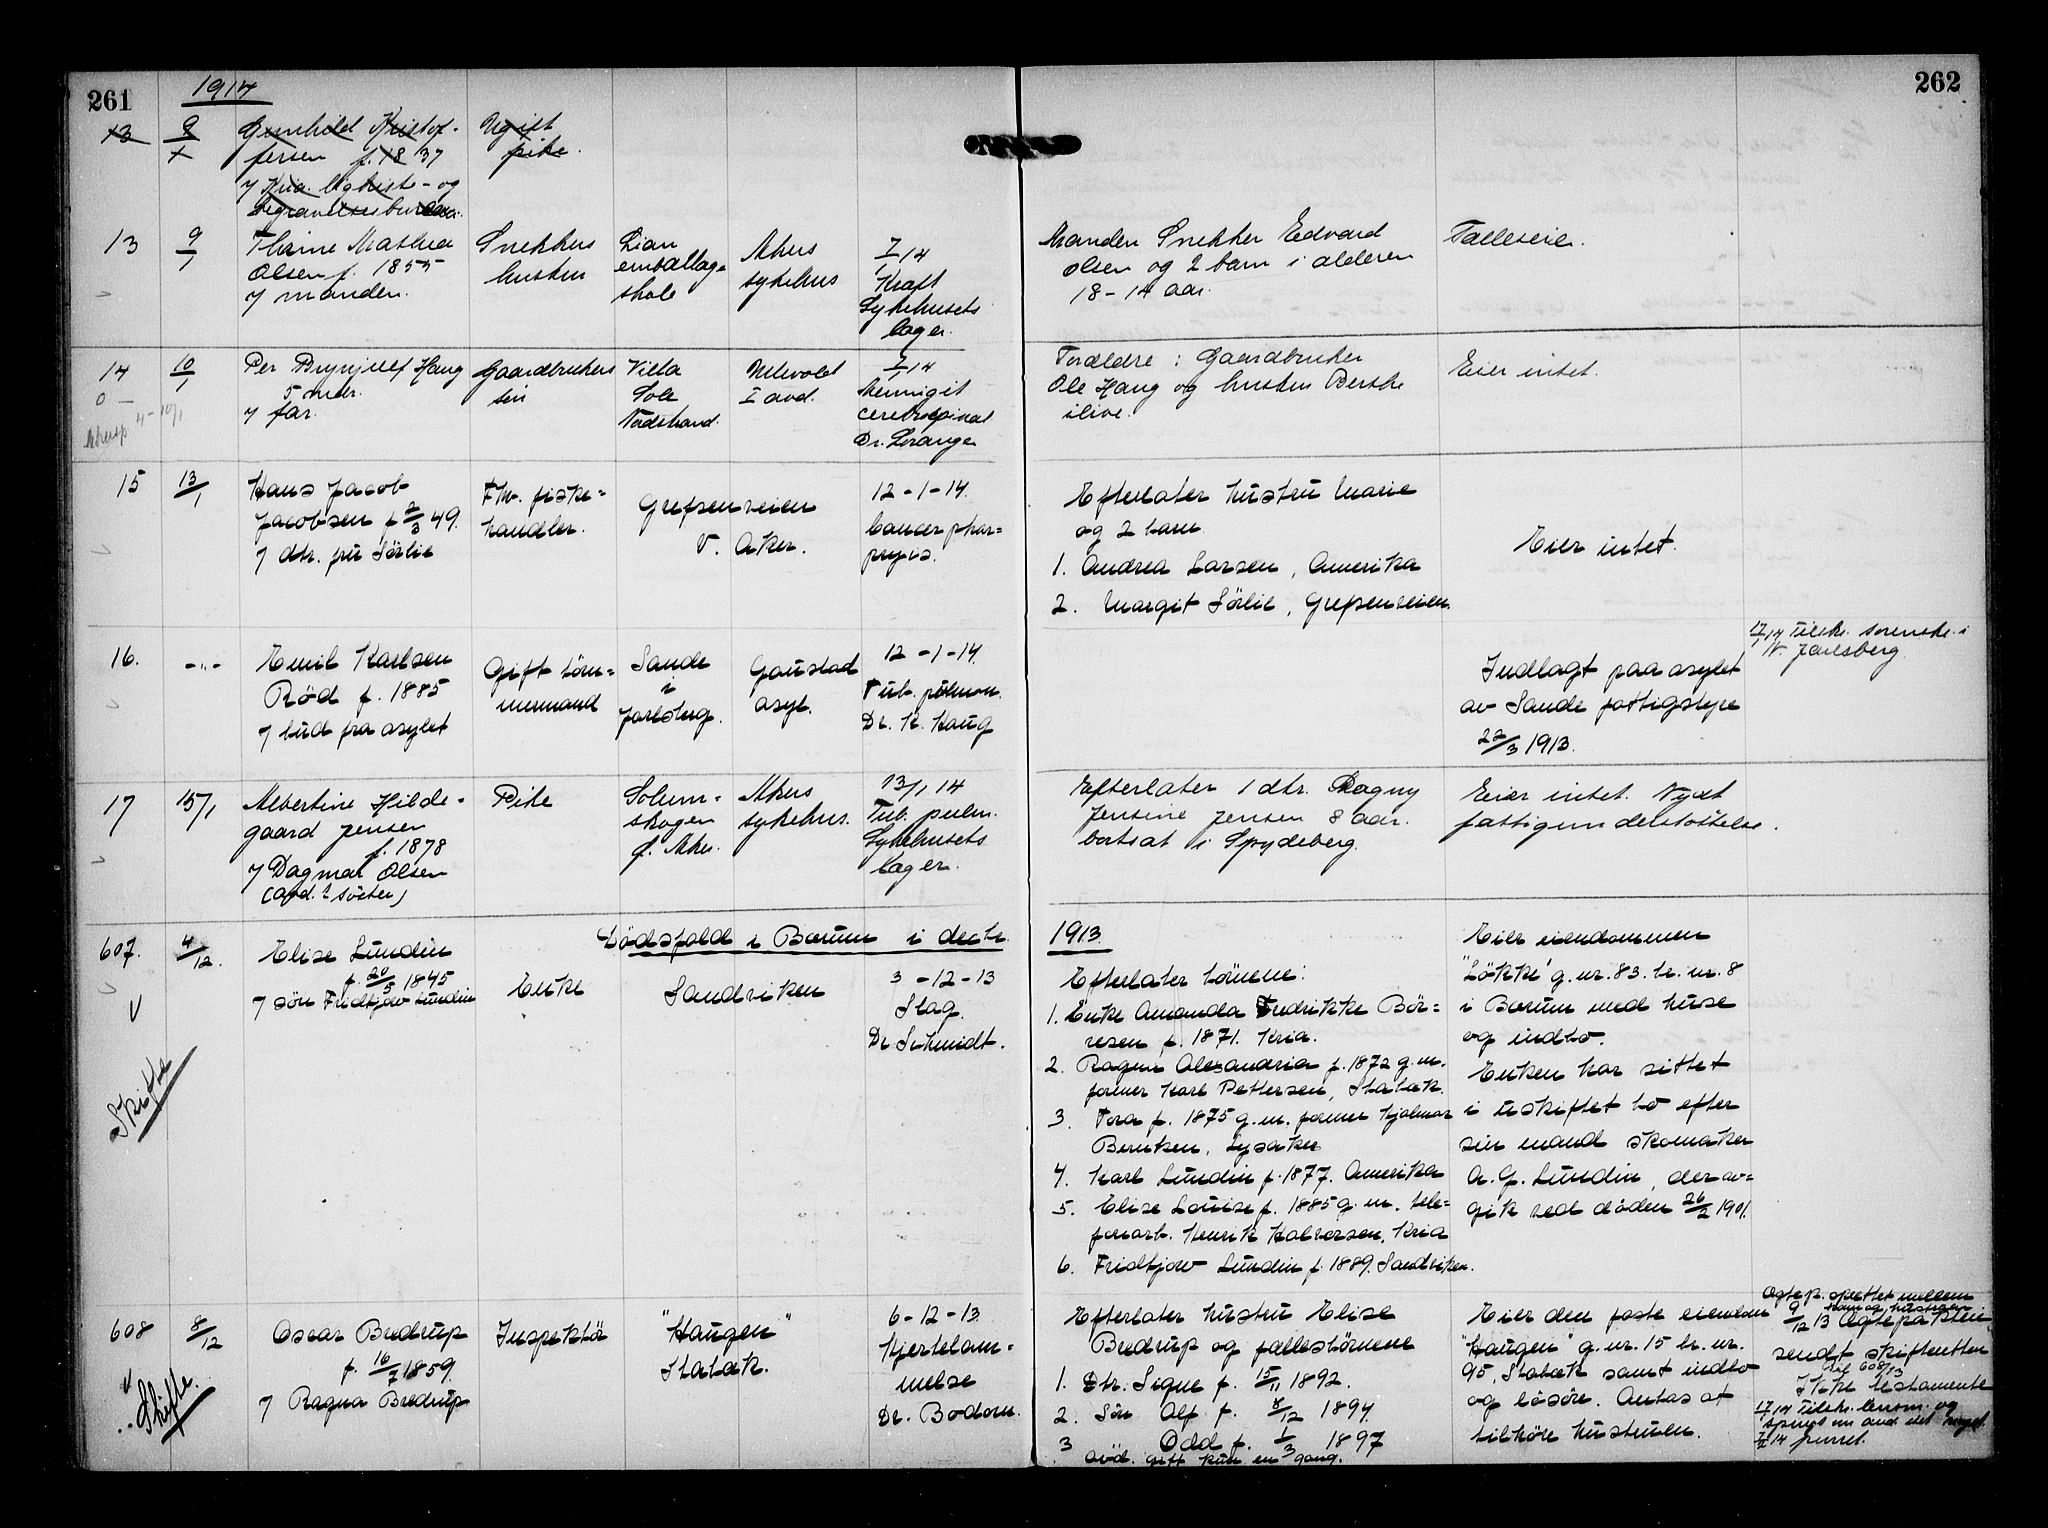 261
1914
262
13 9/1 Gunhild Kristof-
fersen f. 1837
Ugift
pike.
7 Kria. ligkiste- og
begravelsesbureau.
13 9/1 Thrine Mathea
Olsen f. 1855
7 manden.
Snekkers
hustru
Lian
emballage
skole
Akers
sykehus
7/1 14
Kraft
Sykehusets
læger.
Manden Snekker Edvard
Olsen og 2 barn i alderen
18-14 aar.
Fælleseie.
14 10/1 Per Brynjulf Haug
5 mdr.
7 far.
0 —
Akersp 4-10/1
Gaardbrukers
søn
Villa
Sole
Nordstrand.
Ullevold
I avd.
7/1 14
Meningit
cerebrospinal
Dr. Lorange
Forældre: Gaardbruker
Ole Haug og hustru Berthe
ilive.
Eier intet.
15 13/1 Hans Jacob
Jacobsen f 2/3 49.
7 dtr. fru Sørlie
Fhv. fiske=
handler.
Grefsenveien
V. Aker.
12-1-14.
Cancer phar=
pngis.
Efterlater hustru Marie
og 2 barn
1. Andrea Larsen, Amerika
2. Margit Sørlie, Grefsenveien.
Eier intet.
16. -"- Emil Karlsen
Rød f. 1885
7 bud fra asylet
Gift töm=
mermand
Sande
i
Jarlsberg.
Gaustad
asyl.
12-1-14.
Tub. pulmon.
Dr. K. Haug
Indlagt paa asylet
av Sande fattigstyre
22/3 1913.
17/1 14 Tilskr. sorenskr. i
N. Jarlsberg
17 15/1 Albertine Hilde-
gaard Jensen
f. 1878
7 Dagmar Olsen
(avd.s søster)
Pike
Solum-
skogen
Ø. Aker.
Akers
sykehus.
13/1 14
Tub. pulm.
Sykehusets
læger.
Efterlater 1 dtr. Dagny
Jensine Jensen 8 aar.
bortsat i Spydeberg.
Eier intet. Nydt
fattigunderstøttelse.
Dødsfald i Bærum i decbr. 1913.
607. 4/12. Elise Lundin
f. 20/5 1845
7 søn Fridtjov Lundin
Skifte
Enke
Sandviken
3-12-13
Slag.
Dr. Schmidt.
Efterlater børnene:
1. Enke Amanda Fredrikke Bör=
resen f. 1871. Kria.
2. Ragna Alexandria f. 1872 g.m.
former Karl Pettersen, Stabæk.
3. Tora f. 1875 g.m. former Hjalmar
Berntzen, Lysaker
4. Karl Lundin f. 1877. Amerika
5. Elise Louise f. 1885 g.m. tele=
fonarb. Henrik Halvorsen, Kria
6. Fridtjov Lundin f. 1889. Sandviken.
Eier eiendommen
"Løkke" g.nr. 83. br.nr. 8
i Bærum med huse
og indbo.
Enken har sittet
i uskiftet bo efter
sin mand skomaker
A. G. Lundin, der av=
gik ved døden 26/2 1901.
608 8/12 Oscar Bredrup
f. 16/7 1859.
7 Ragna Bredrup
Skifte.
Inspektör
"Haugen"
Stabæk.
6-12-13.
Hjertelam-
melse
Dr. Bodom.
Efterlater hustru Elise
Bredrup og fællesbörnene
1. Dtr. Signe f. 15/11 1892.
2. Sön Alf f. 8/12 1894
3 Odd f. 1/3 1897
avd. gift kun en gang.
Eier den faste eiendom
"Haugen" g.nr. 15 br.nr.
95, Stabæk samt indbo
og løsøre. Antas at
tilhöre hustruen.
Ægtep. oprettet mellem
ham og hustruen
9/12 13 Ægtepakten
sendt skifteretten
til 608/13
Ikke testamente
17/1 14 Tilskr. lensm. og
spurgt om avd. iset noget.
7/2 14 purret.